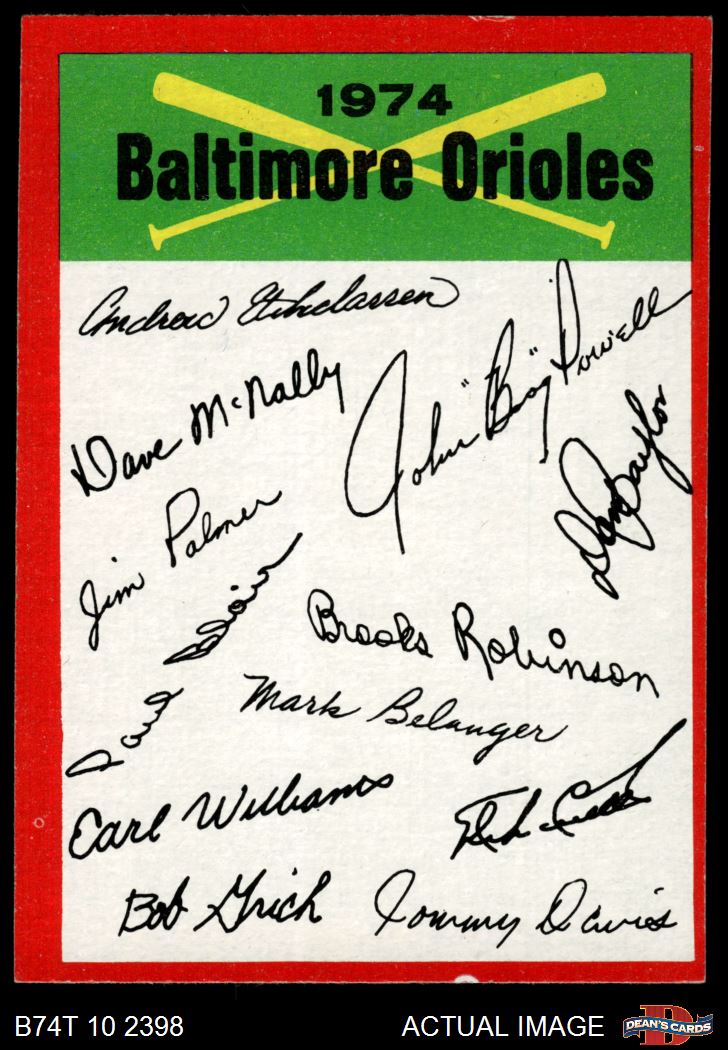 1974
Baltimore Orioles
Andrew Etchebarren
Dave McNally
John "Boog" Powell
Don Baylor
Jim Palmer
Paul Blair
Brooks Robinson
Mark Belanger
Earl Williams
Bob Grich
Tommy Davis
B74T 10 2398
ACTUAL IMAGE
D
DEAN'S CARDS